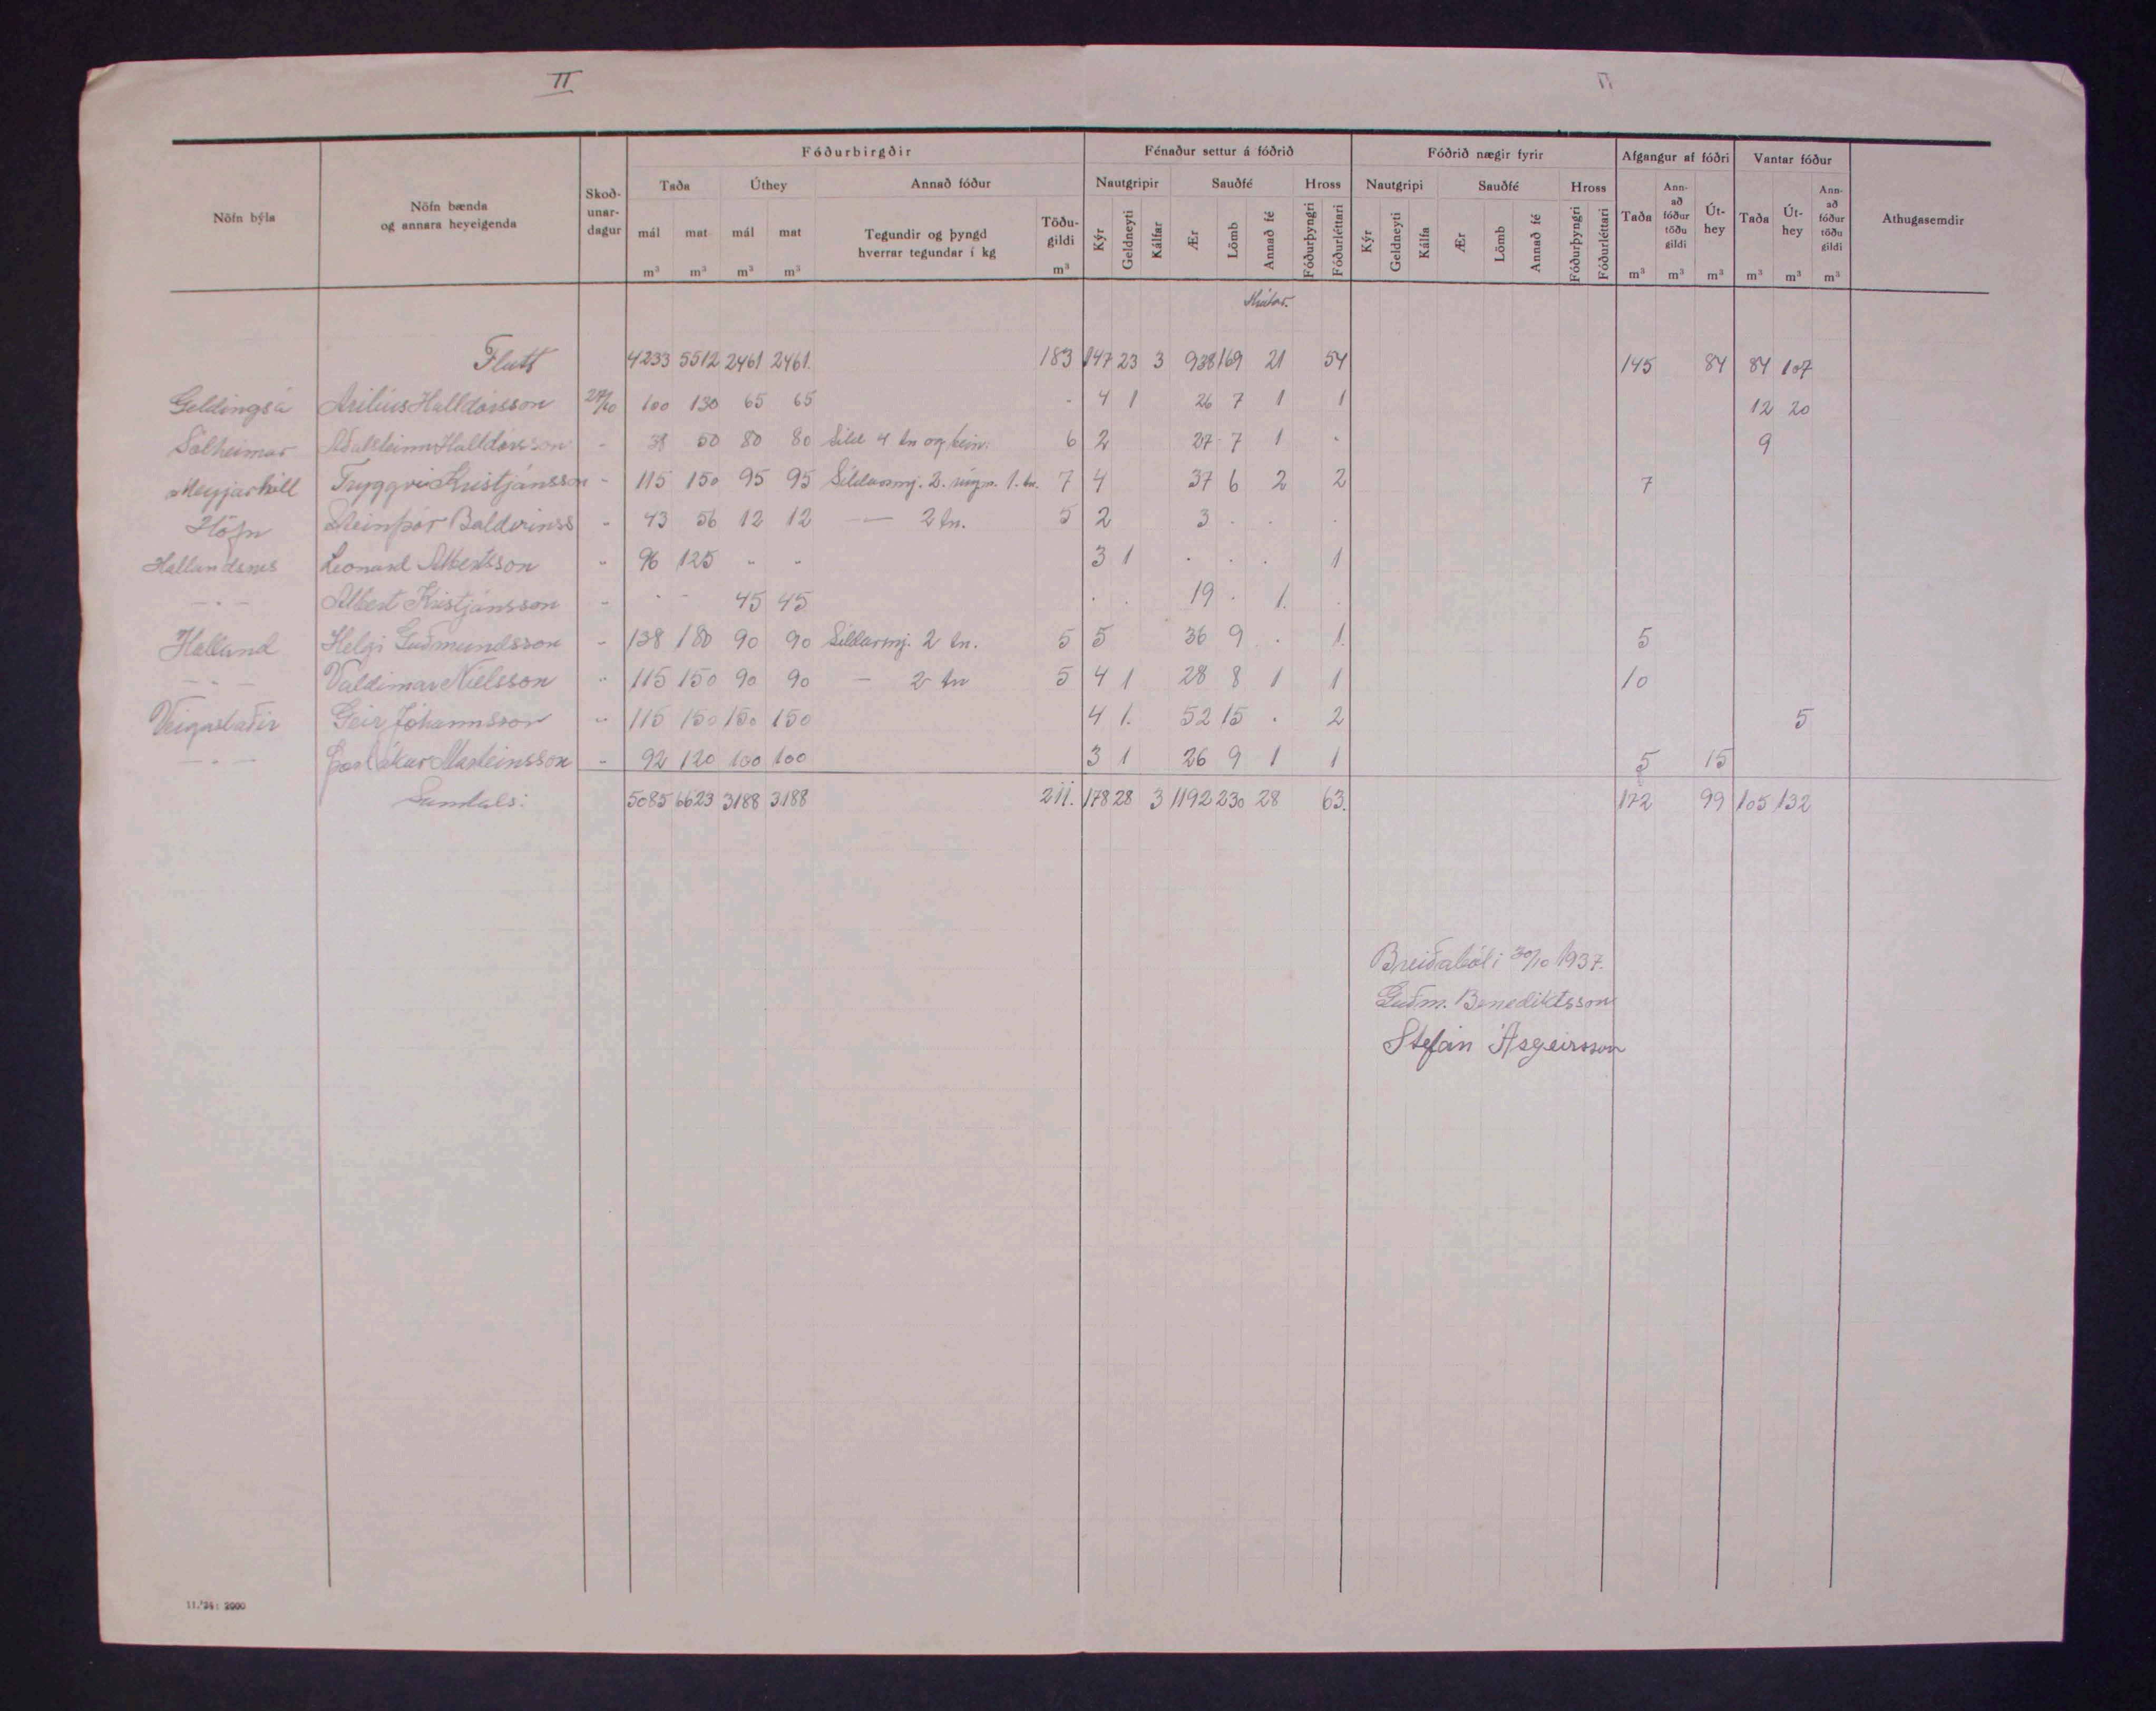 II
II
Nöfn býla
Nöfn bænda og annara heyeigenda
Skoð-unar-dagur
Fóðurbirgðir
Taða
Úthey
Annað fóður
mál m³
mat m³
mál m³
mat m³
Tegundir og þyngd hverrar tegundar í kg
Töðu-gildi m³
Fénaður settur á fóðrið
Nautgripir
Sauðfé
Hross
Kýr
Geldneyti
Kálfar
Ær
Lömb
Annað fé
Fóðurþyngri
Fóðurléttari
Fóðrið nægir fyrir
Nautgripi
Sauðfé
Hross
Kýr
Geldneyti
Kálfa
Ær
Lömb
Annað fé
Fóðurþyngri
Fóðurléttari
Afgangur af fóðri
Taða m³
Ann-að fóður töðu gildi m³
Út-hey m³
Vantar fóður
Taða m³
Út-hey m³
Ann-að fóður töðu gildi m³
Athugasemdir
Hrútar.
Flutt 4233 5512 2461 2461. 183 147 23 3 938 169 21 54 145 84 84 107
Geldingsá Arilíus Halldórsson 27/10 100 130 65 65 - 4 1 26 7 1 1 12 20
Sólheimar Aðalsteinn Halldórsson - 38 50 80 80 Síld 4 tn og bein. 6 2 27 7 1 . 9
Meyjarhóll Tryggvi Kristjánsson - 115 150 95 95 Síldarmj. 2. rúgm. 1. tn. 7 4 37 6 2 2 7
Höfn Steinþór Baldvinss - 43 56 12 12 — 2 tn. 5 2 3 . . .
Hallandsnes Leonard Albertsson - 96 125 - - 3 1 . . . 1
- " - Albert Kristjánsson - - - 45 45 . . 19 . 1. .
Halland Helgi Guðmundsson - 138 180 90 90 Síldarmj. 2 tn. 5 5 36 9 . 1. 5
- " - Valdimar Níelsson - 115 150 90 90 - 2 tn 5 4 1 28 8 1 1 10
Veigastaðir Geir Jóhannsson - 115 150 150 150 4 1. 52 15 . 2 5
- " - Þorlákur Marteinsson - 92 120 100 100 3 1 26 9 1 1 5 15
Samtals: 5085 6623 3188 3188 211. 178 28 3 1192 230 28 63. 172 99 105 132
Breiðabóli 30/10 1937.
Guðm. Benediktsson
Stefán Ásgeirsson
11.'36: 2000